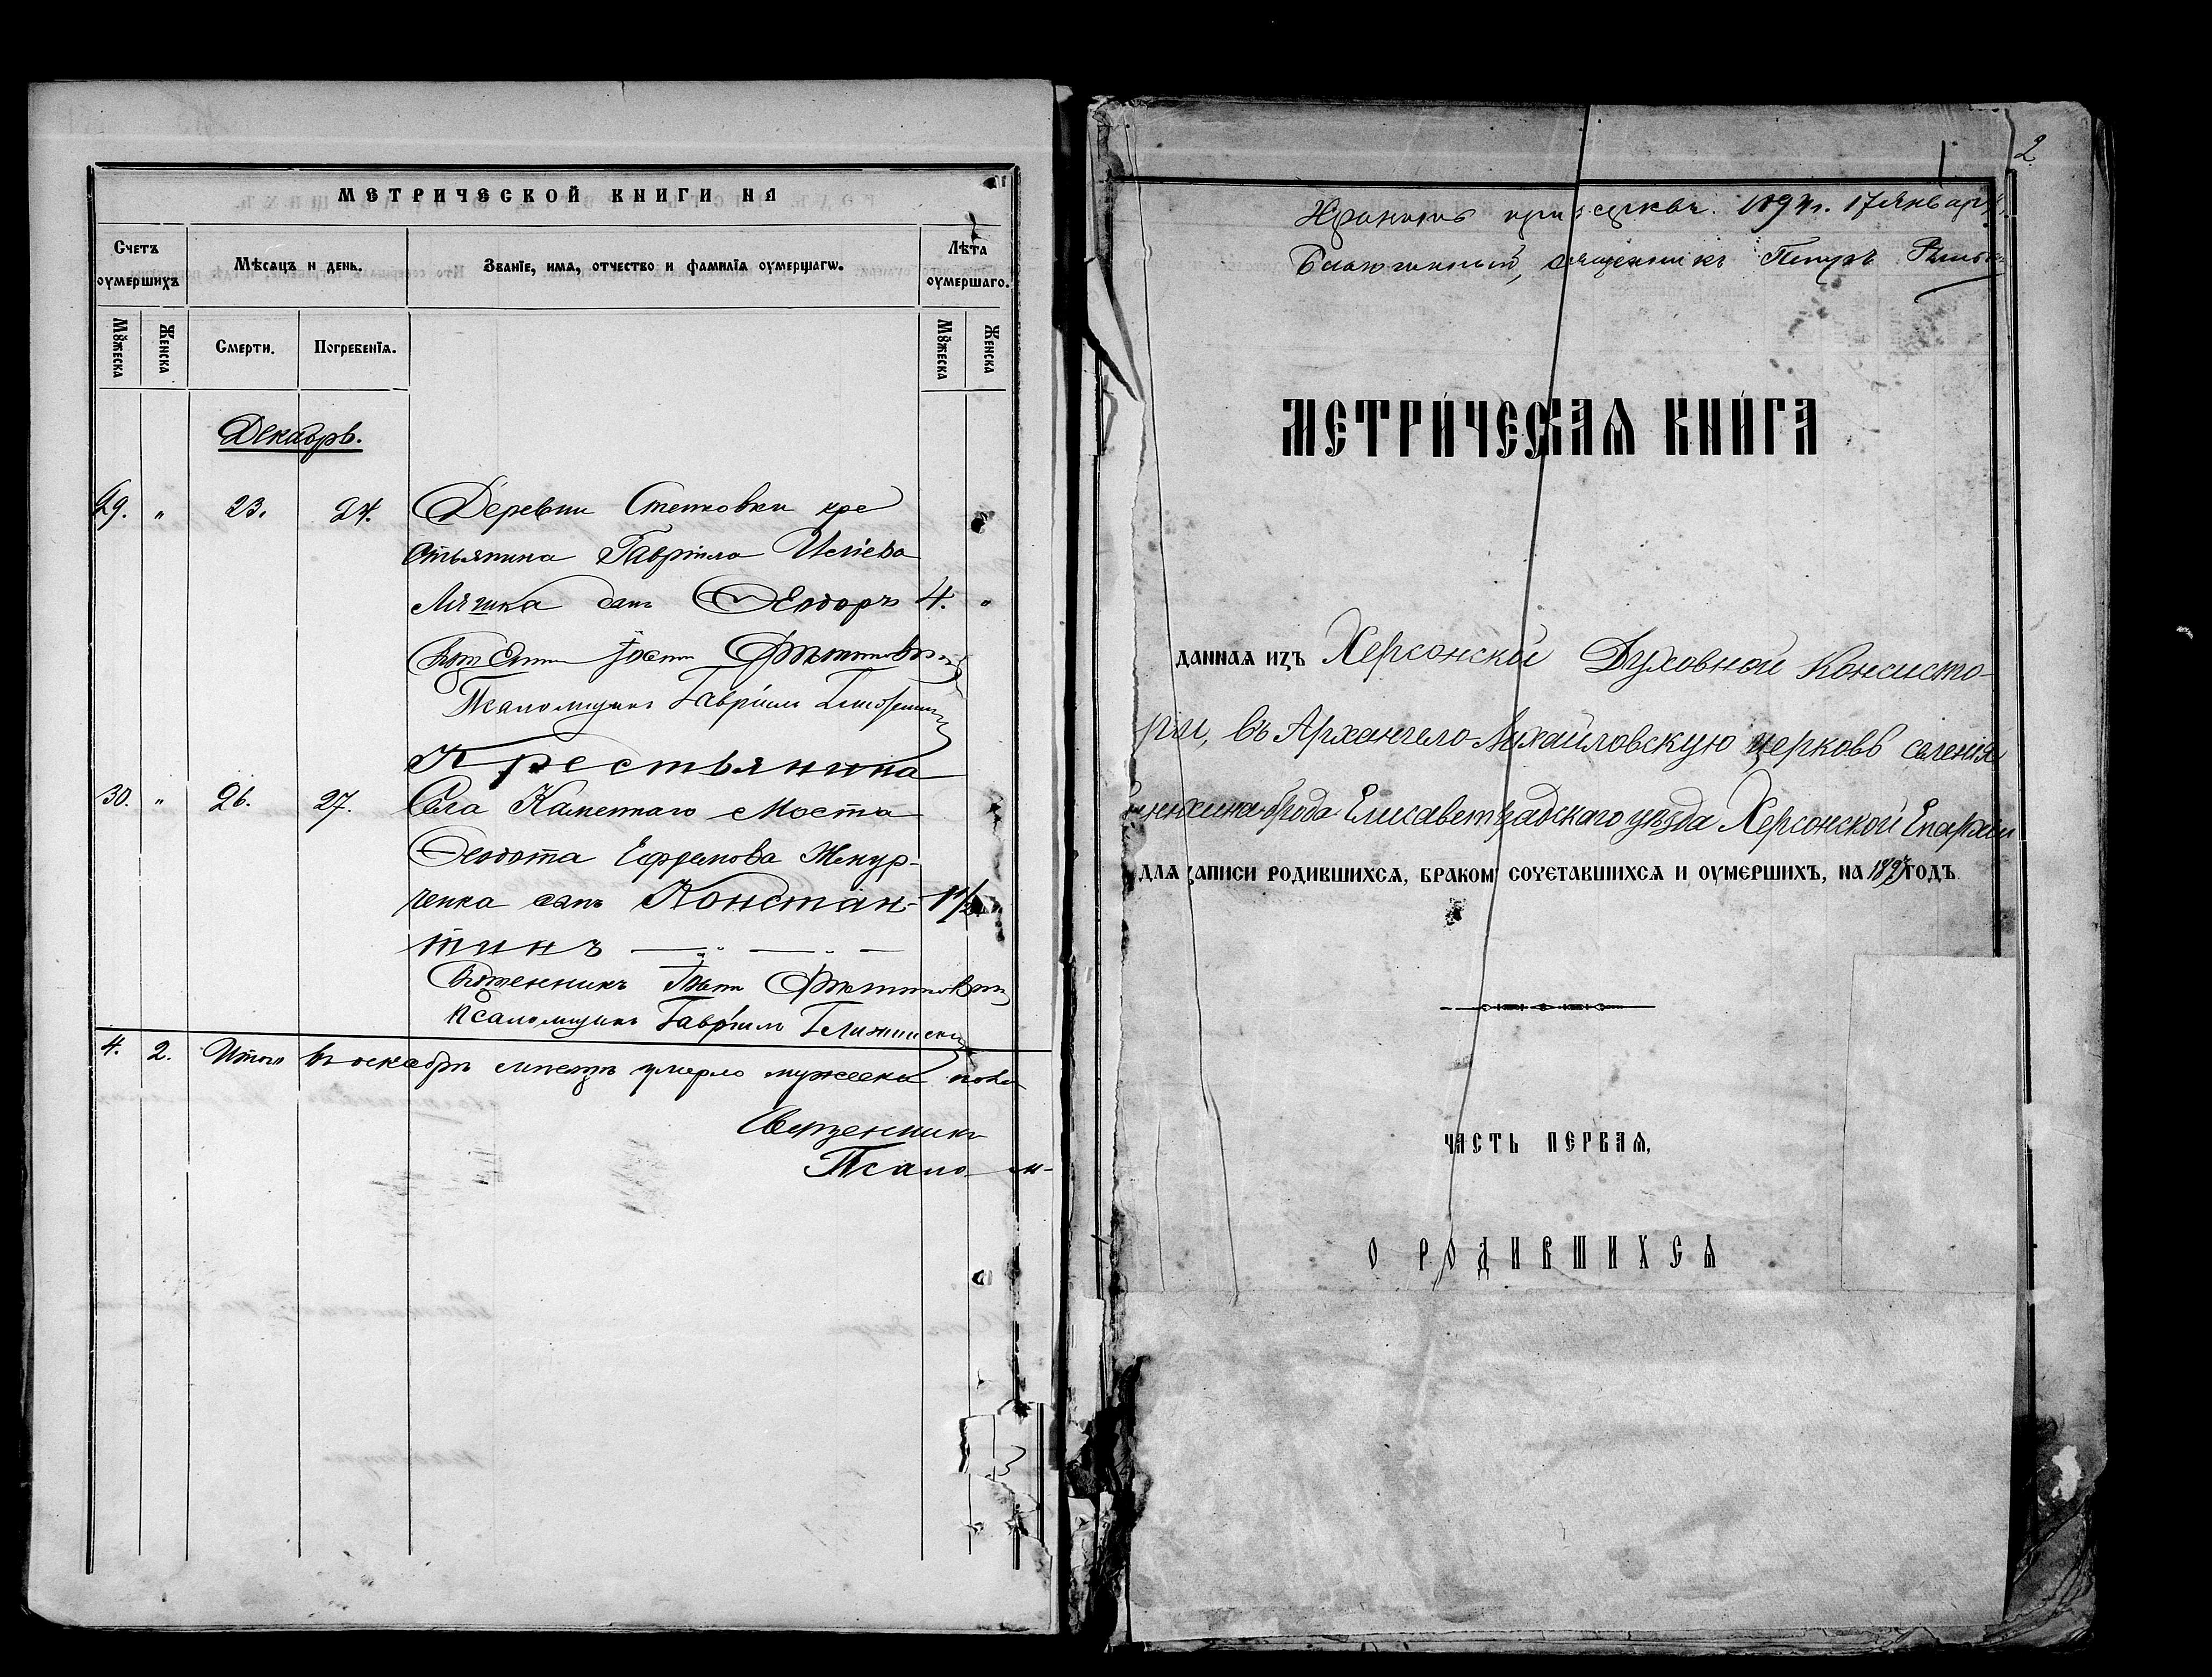 МЕТРИЧЕСКОЙ КНИГИ НА
Счетъ оумершихъ
Мѣсяцъ и день.
Званїе, има, отчество и фамилїа оумершагѡ.
Лѣта оумершаго.
Мꙋжеска
Женска
Смерти.
Погребенїа.
Мꙋжеска
Женска
Декабрь.
29. " 23. 24. Деревни Степковки кре
стьянина Гаврiила Илiева
сынъ Ѳеодоръ 4. "
Псаломщикъ Гаврiилъ
Крестьянина
30. " 26. 27. Села Каменнаго Моста
Ѳеодота Ефремова
ченка сынъ Констан- 1 1/2
тинъ — " — " —
Священникъ
Псаломщикъ Гаврiилъ
4. 2. Итого въ декабрѣ мѣсяцѣ умерло мужеска пола
Священникъ
Псало м-
2
Хранить при церкви. 1897 г. 17 января.
Благочинный, священникъ Петръ
МЕТРИ́ЧЕСКАѦ КНИ́ГА
ДАННАѦ ИЗЪ Херсонской Духовной Консисто-
рiи, въ Архангело-Михайловскую церковь селенiя
брода Елисаветградскаго уѣзда Херсонской Епархiи
ДЛѦ ЗАПИСИ РОДИВШИХСѦ, БРАКОМЪ СОЧЕТАВШИХСѦ И ОУМЕРШИХЪ, НА 1897 ГОДЪ
ЧАСТЬ ПЕРВАѦ,
О РОДИВШИХСѦ